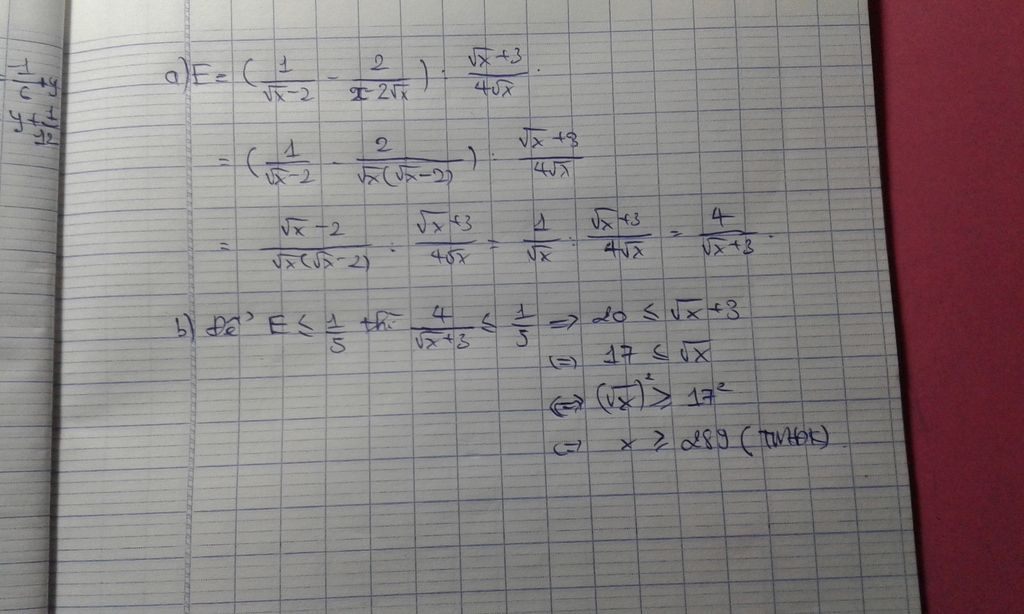 a) E = (1/(√x-2) - 2/(x-2√x)) : (√x+3)/(4√x).
= (1/(√x-2) - 2/(√x(√x-2))) : (√x+3)/(4√x)
= (√x-2)/(√x(√x-2)) : (√x+3)/(4√x) = 1/√x : (√x+3)/(4√x) = 4/(√x+3).
b) Để E ≤ 1/5 thì 4/(√x+3) ≤ 1/5 => 20 ≤ √x+3
<=> 17 ≤ √x
<=> (√x)² ≥ 17²
<=> x ≥ 289 (TMĐK)
1/6 + y
y + 1/12